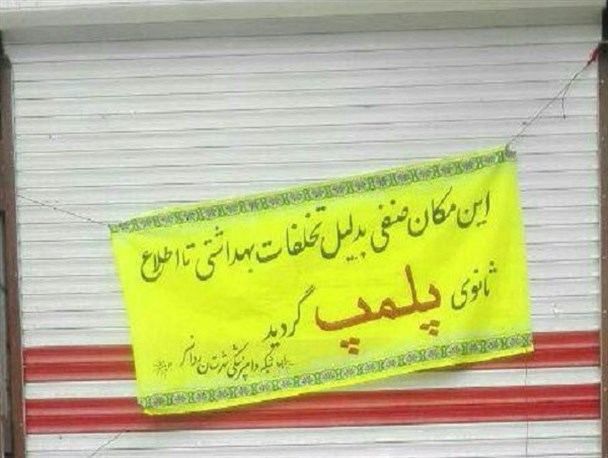 این مکان صنفی بدلیل تخلفات بهداشتی تا اطلاع
ثانوی پلمپ گردید
شبکه دامپزشکی شهرستان